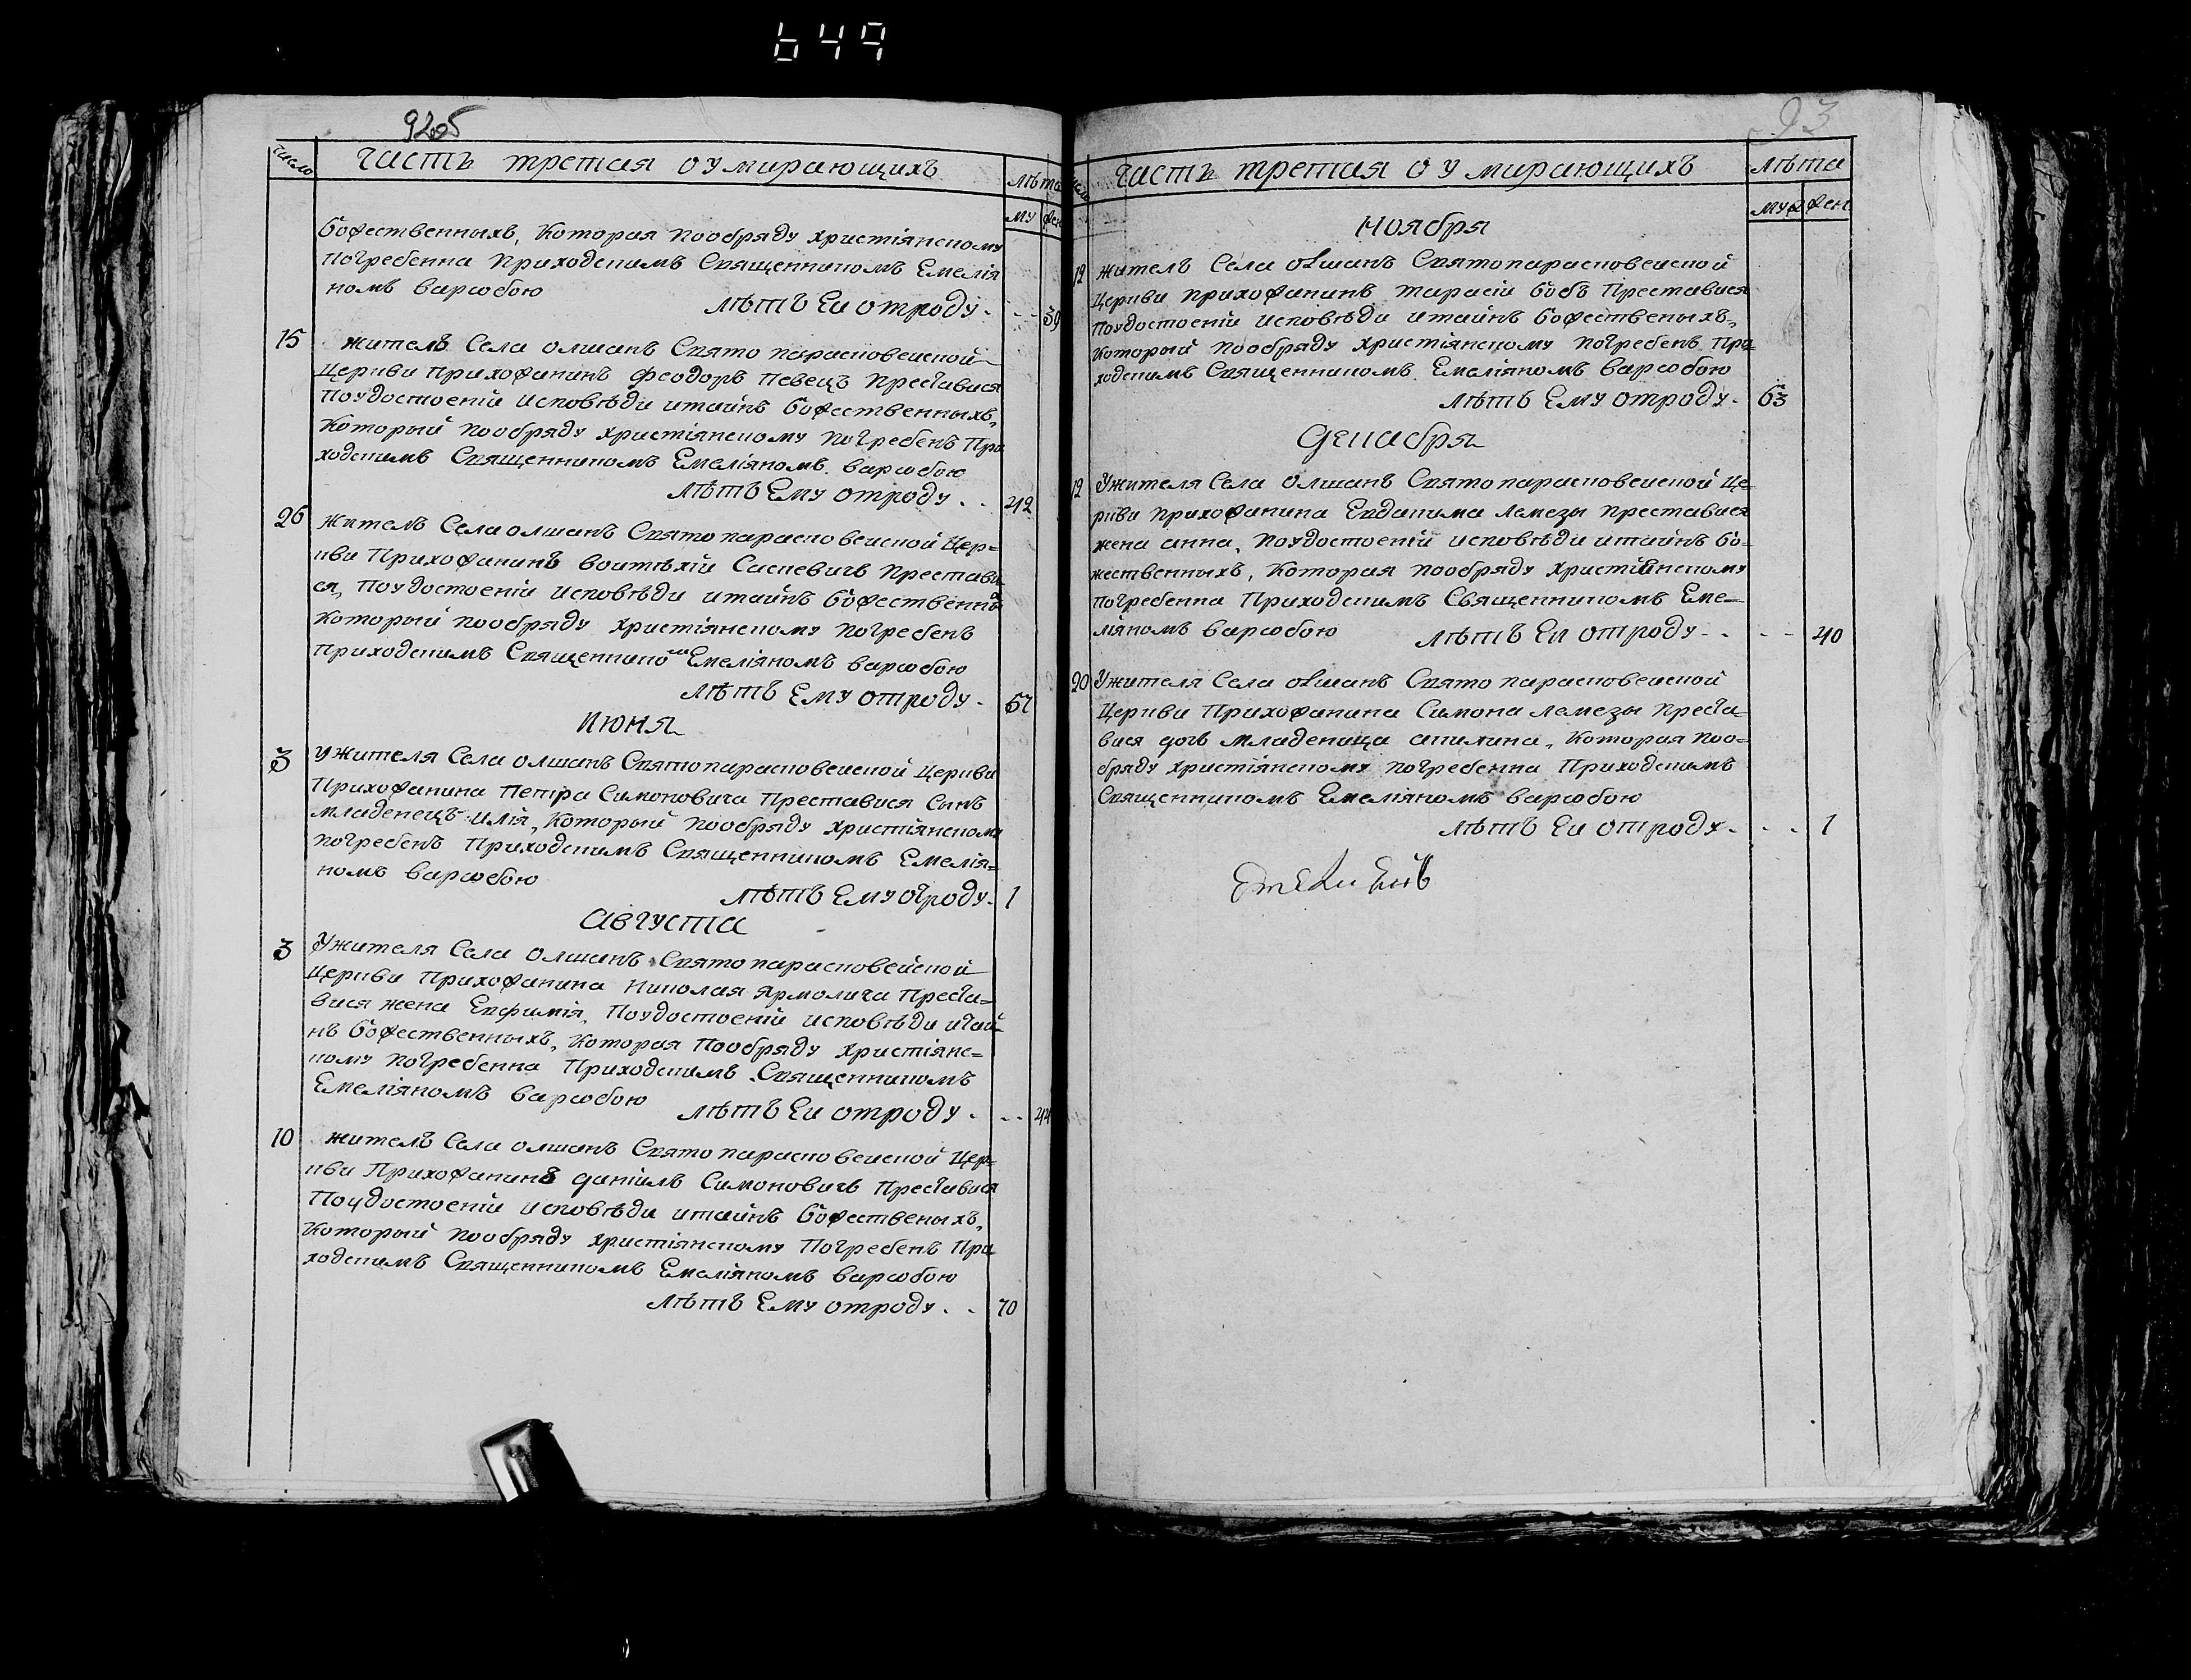 649
9205
число
часть третая о умирающихъ
лѣта
му жен
божественныхъ, Которая пообряду христіянскому
погребенна Приходскимъ Священникомъ Емелія
номъ варивобою
лѣтъ Еи отроду. - - 39
15 жителъ Села олшанъ Святопарасковеиской
Церкви Прихожанинъ Феодоръ Певецъ Преставися
Поудостоеніи исповѣди итаинъ божественныхъ,
Который пообряду христіянскому погребенъ При
ходскимъ Священникомъ Емеліяномъ варивобою
лѣтъ Ему отроду . . 42
26 жителъ Села олшанъ Святопарасковеиской Цер=
кви Прихожанинъ воитѣхіи Саскевичъ Престави
ся, Поудостоеніи исповѣди итаинъ божественныхъ
Который пообряду христіянскому погребенъ
Приходскимъ Священникомъ Емеліяномъ варивобою
лѣтъ Ему отроду . 67
июня
3 Ужителя Села олшанъ Святопарасковеиской Церкви
Прихожанина Петра Симоновича Преставися Синъ
младенецъ илія, Который пообряду христіянскому
погребенъ Приходскимъ Священникомъ Емелія=
номъ варивобою
лѣтъ Ему отроду. 1
Августа
3 Ужителя Села олшанъ Святопарасковеиской
Церкви Прихожанина Николая Ярмолича Преста=
вися жена Евфимія, Поудостоеніи исповѣди итаи
нъ божественныхъ, Которая Пообряду христіянс=
кому погребенна Приходскимъ Священникомъ
Емеліяномъ варивобою
лѣтъ Еи отроду . - - 44
10 жителъ Села олшанъ Святопарасковеиской Цер=
кви Прихожанинъ даніилъ Симоновичъ Преставися
Поудостоеніи исповѣди итаинъ божественыхъ,
Который пообряду христіянскому Погребенъ При
ходскимъ Священникомъ Емеліяномъ варивобою
лѣтъ Ему отроду . . 70
93
часть третая о умирающихъ
лѣта
муж жен
Ноября
12 жителъ Села олшанъ Святопарасковеиской
Церкви прихожанинъ тарасіи бобъ Преставися
Поудостоеніи исповѣди итаинъ божественыхъ,
который пообряду христіянскому погребенъ При=
ходскимъ Священникомъ Емеліяномъ варивобою
лѣтъ Ему отроду. 63
Декабря
12 Ужителя Села олшанъ Святопарасковеиской Це=
ркви прихожанина Евдакима ламезы преставися
жена анна, Поудостоеніи исповѣди итаинъ бо=
жественныхъ, Которая пообряду христіянскому
погребенна Приходскимъ Священникомъ Еме=
ліяномъ варивобою
лѣтъ Еи отроду - . - - 40
20 Ужителя Села олшанъ Святопарасковеиской
Церкви Прихожанина Симона ламезы преста=
вися дочъ младеница акилина, Которая поо=
бряду христіянскому погребенна Приходскимъ
Священникомъ Емеліяномъ варивобою
лѣтъ Еи отроду . . . 1